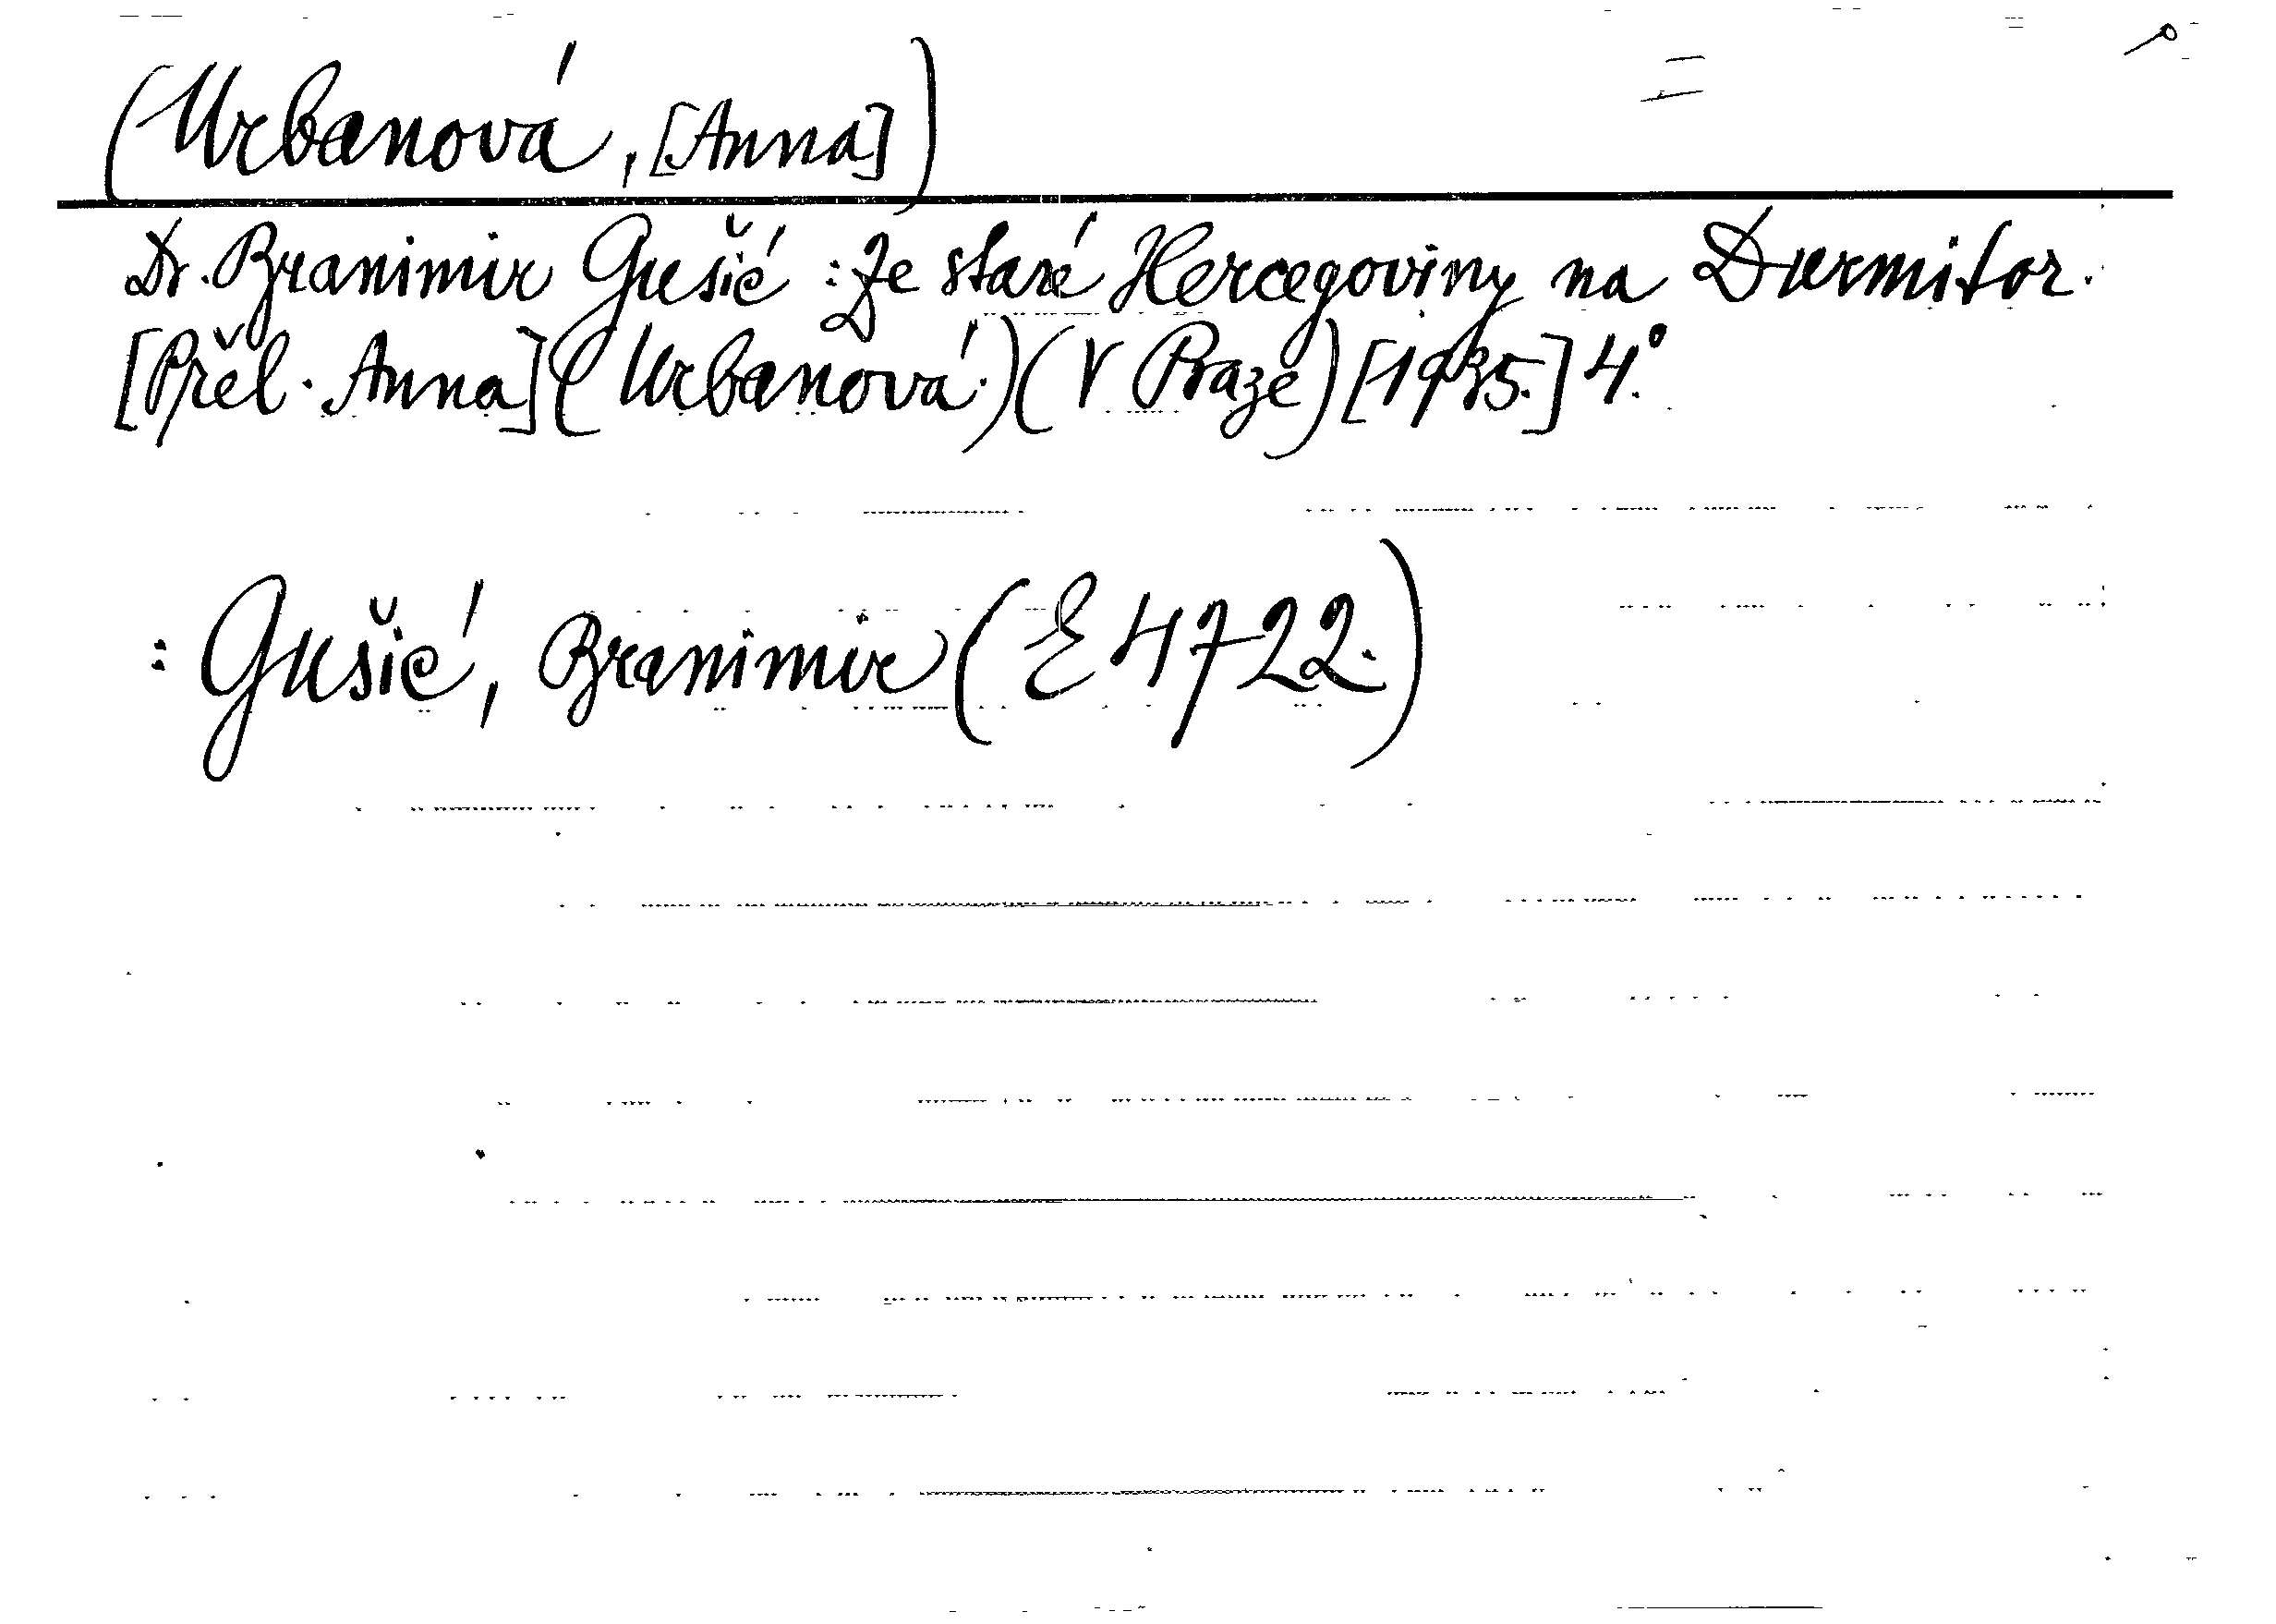 (Urbanová, [Anna])
Dr. Branimir Gušić : Ze staré Hercegoviny na Durmitor.
[Přel. Anna] (Urbanová.) (V Praze) [1935.] 4.°
: Gušić, Branimir (E 4722.)